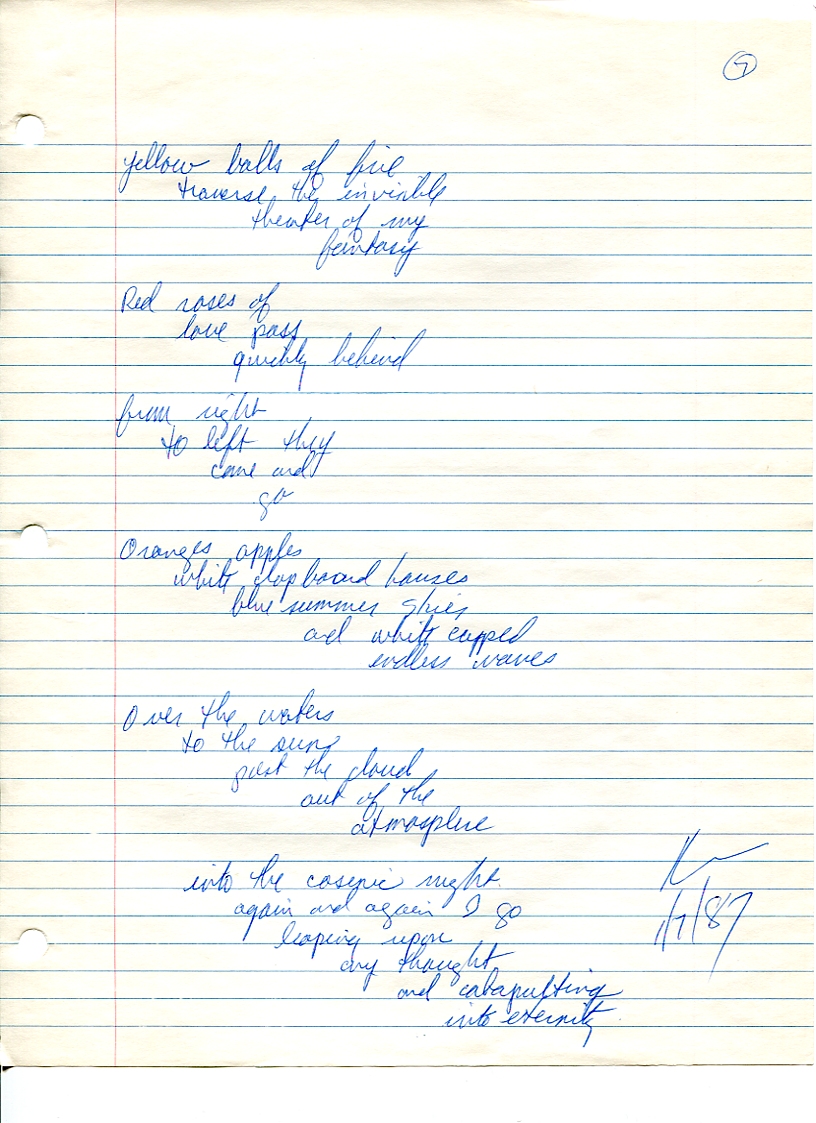 7
Yellow balls of fire
traverse the invisible
theater of my
fantasy
Red roses of
love pass
quickly behind
from right
to left they
come and
go
Oranges apples
white clapboard houses
blue summer skies
and white capped
endless waves
Over the waters
to the sun
past the cloud
out of the
atmosphere
into the cosmic night
again and again I go
leaping upon
my thought
and catapulting
into eternity
1/7/87